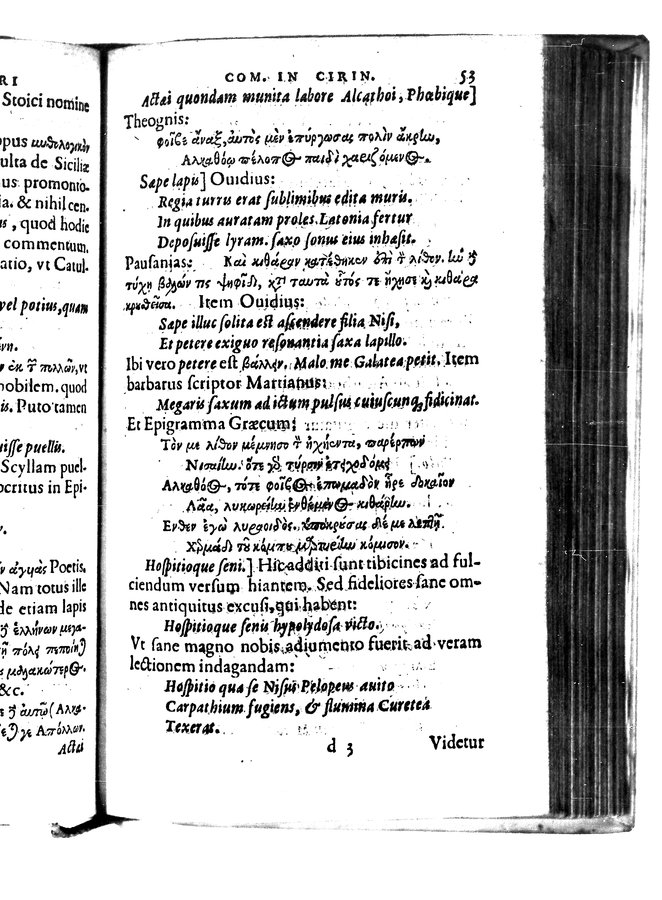 RI
Stoici nomine
opus μυθολογικὸν
ulta de Siciliæ
us promonto-
ia. & nihil cen.
us, quod hodie
commentum,
atio, vt Catul.
vel potius, quam
mobilem. quod
is. Puto tamen
uisse puellis.
Scyllam puel-
ocritus in Epi-
Poetis.
Nam totus ille
de etiam lapis
&c.
Actai
COM. IN CIRIN. 53
Actai quondam munita labore Alcathoi, Phœbique]
Theognis:
φοῖβε ἄναξ, αὐτὸς μὲν ἐπύργωσας πολὶν ἄκρίω,
Αλκαθόῳ πέλοπος παιδὶ χαριζόμενος.
Sape lapis] Ouidius:
Regia turris erat sublimibus edita muris.
In quibus auratam proles Latonia fertur
Deposuisse lyram. saxo sonus eius inhæsit.
Pausanias: Καὶ κιθάραν κατέθηκεν ἐπὶ τ λίθον. ἰω ἢ
τύχη βαλών τις ψηφῖδι, κτ ταυτὰ οὗτός τε ἤχησε κὶ κιθάρα
κρουθεῖσα. Item Ouidius:
Sape illuc solita est ascendere filia Nisi,
Et petere exiguo resonantia saxa lapillo.
Ibi vero petere est βάλλειν. Malo me Galatea petit. Item
barbarus scriptor Martianus:
Megaris saxum ad ictum pulsus cuiuscunq; fidicinat.
Et Epigramma Græcum:
Τὸν με λίθον μέμνησο τ ἠχήεντα, παρέρπων
Νισαίω. ὅτε γδ τύρσιν ἐτειχοδόμει
Αλκαθόος, τότε φοῖβος ἐπωμαδὸν ἦρε δομαῖον
Λᾶα, λυκωρείω ἐνθέμενος κιθάρω.
Ενθεν ἐγὼ λυραοιδός. ὑποκρύσας δέ με λεπτῇ
Χερμάδι τοῦ κόμπου μαρτυρίω κόμισον.
Hospitioque seni.] Hic additi sunt tibicines ad ful-
ciendum versum hiantem. Sed fideliores sane om-
nes antiquitus excusi, qui habent:
Hospitioque senis hypolydosa victo.
Vt sane magno nobis adiumento fuerit ad veram
lectionem indagandam:
Hospitio qua se Nisus Pelopeus auito
Carpathium fugiens, & flumina Curetea
Texerat.
d 3 Videtur